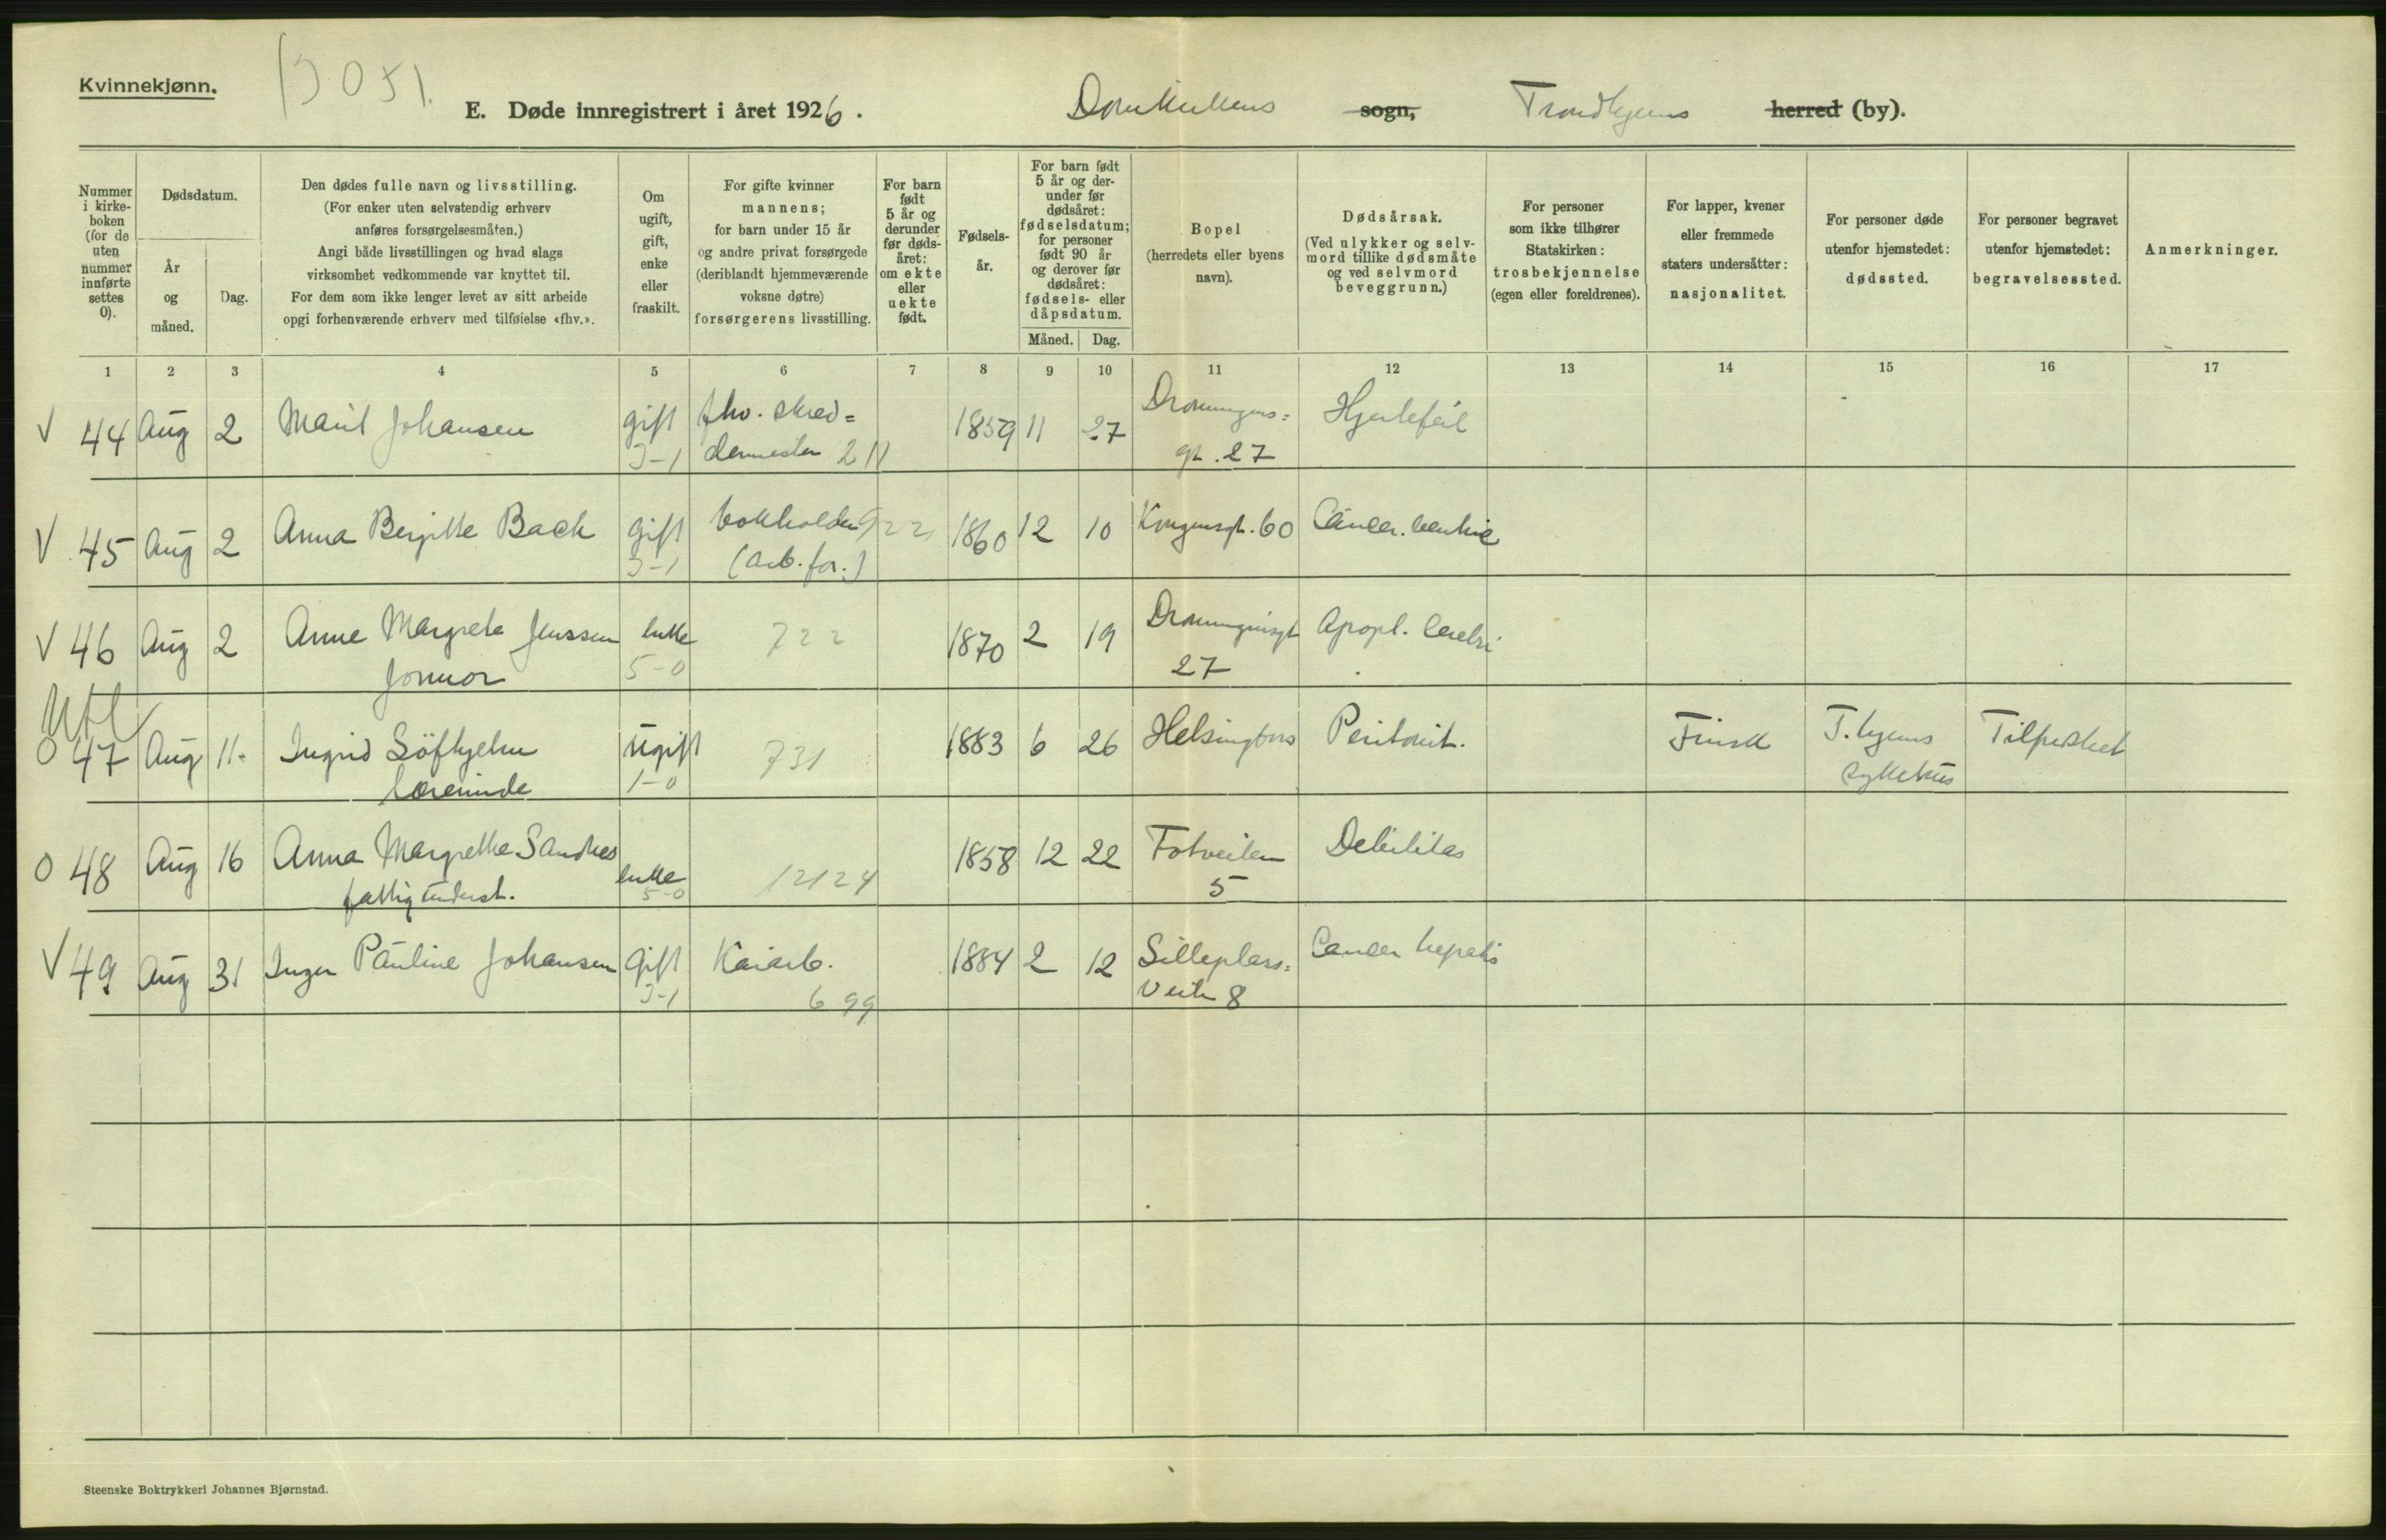 Kvinnekjønn.
E. Døde innregistrert i året 1926. Domkirkens sogn, Trondhjems herred (by).
Nummer i kirke-boken (for de uten nummer innførte settes 0).
Dødsdatum.
År og måned.
Dag.
Den dødes fulle navn og livsstilling.
(For enker uten selvstendig erhverv
anføres forsørgelsesmåten.)
Angi både livsstillingen og hvad slags
virksomhet vedkommende var knyttet til.
For dem som ikke lenger levet av sitt arbeide
opgi forhenværende erhverv med tilføielse «fhv.».
Om ugift, gift, enke eller fraskilt.
For gifte kvinner
mannens;
for barn under 15 år
og andre privat forsørgede
(deriblandt hjemmeværende
voksne døtre)
forsørgerens livsstilling.
For barn født 5 år og derunder før døds-året: om ekte eller uekte født.
Fødsels-år.
For barn født 5 år og der-under før dødsåret: fødselsdatum; for personer født 90 år og derover før dødsåret: fødsels- eller dåpsdatum.
Måned. Dag.
Bopel
(herredets eller byens
navn).
Dødsårsak.
(Ved ulykker og selv-
mord tillike dødsmåte
og ved selvmord
beveggrunn.)
For personer
som ikke tilhører
Statskirken:
trosbekjennelse
(egen eller foreldrenes).
For lapper, kvener
eller fremmede
staters undersåtter:
nasjonalitet.
For personer døde
utenfor hjemstedet:
dødssted.
For personer begravet
utenfor hjemstedet:
begravelsessted.
Anmerkninger.
1 2 3 4 5 6 7 8 9 10 11 12 13 14 15 16 17
V 44 Aug 2 Marit Johansen gift fhv. skred= 1859 11 27 Dronningens= Hjertefeil
3-1 dermester 211 gt. 27
V 45 Aug 2 Anna Bergitte Back gift bokholder 922 1860 12 10 Kongensgt. 60 Cancer.
3-1 (arb. for.)
V 46 Aug 2 Anne Margrete Jenssen enke 722 1870 2 19 Dronningensgt Apopl. Cerebri
Jormor 5-0 27
0 47 Aug 11 Ingrid Söfhjelm ugift 731 1883 6 26 Helsingfors Peritonit. Finsk T.hjems
Lærerinde 1-0 Sykehus
0 48 Aug 16 Anna Margrethe Sandnes enke 12124 1858 12 22 Totveiten Debilitas
fattigunderst. 5-0 5
V 49 Aug 31 Inger Pauline Johansen Gift Kaiarb. 1884 2 12 Silleplass= Cancer hepatis
3-1 699 Veite 8
Steenske Boktrykkeri Johannes Bjørnstad.